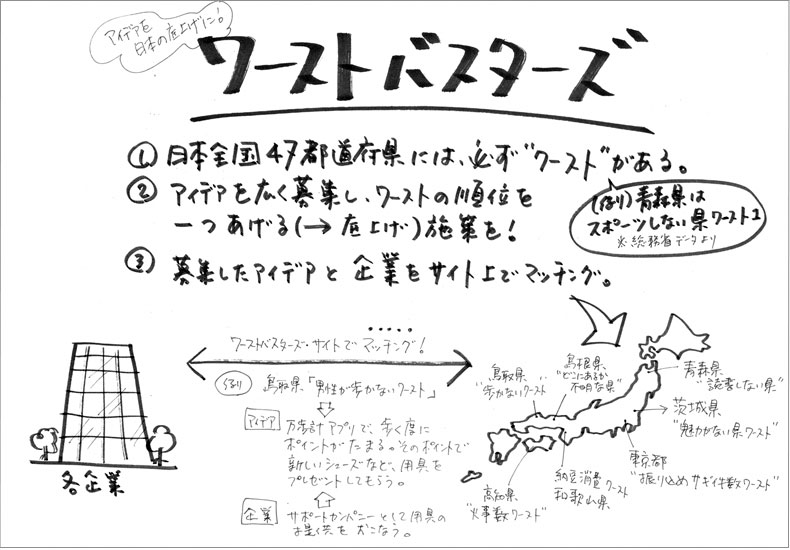 アイデアを
日本の底上げに!
ワーストバスターズ
① 日本全国47都道府県には、必ず"ワースト"がある。
② アイデアを広く募集し、ワーストの順位を
一つあげる(→ 底上げ)施策を!
(例) 青森県は
スポーツしない県ワースト1
※総務省データより
③ 募集したアイデアと企業をサイト上でマッチング。
ワーストバスターズ・サイトでマッチング!
各企業
(例) 鳥取県「男性が歩かないワースト」
アイデア
万歩計アプリで、歩く度に
ポイントがたまる。そのポイントで
新しいシューズなど、用具を
プレゼントしてもらう。
企業
サポートカンパニーとして用具の
お提供をおこなう。
鳥取県
"歩かないワースト"
島根県、
"どこにあるか
不明な県"
青森県
"読書しない県"
茨城県
"魅力がない県ワースト"
東京都
"振り込めサギ件数ワースト"
納豆消費ワースト
和歌山県
高知県
"火事数ワースト"